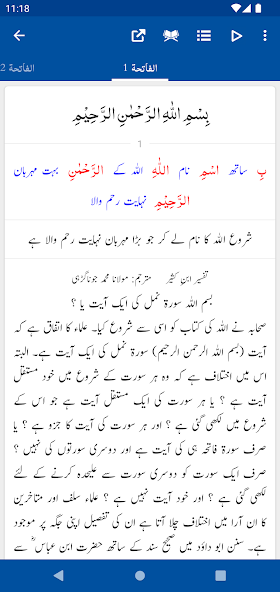 11:18
الفاتحة 1
الفاتحة 2
بِسْمِ اللهِ الرَّحْمٰنِ الرَّحِيْمِ
1
بِ ساتھ اسْمِ نام اللّٰهِ اللہ کے الرَّحْمٰنِ بہت مہربان
الرَّحِيْمِ نہایت رحم والا
شروع اللہ کا نام لے کر جو بڑا مہربان نہایت رحم والا ہے
تفسیر ابن کثیر مترجم: مولانا محمد جوناگڑہی
بسم اللہ سورۃ نمل کی ایک آیت یا ؟
صحابہ نے اللہ کی کتاب کو اسی سے شروع کیا۔ علماء کا اتفاق ہے کہ
آیت (بسم اللہ الرحمن الرحیم) سورۃ نمل کی ایک آیت ہے۔ البتہ
اس میں اختلاف ہے کہ وہ ہر سورت کے شروع میں خود مستقل
آیت ہے ؟ یا ہر سورت کی ایک مستقل آیت ہے جو اس کے
شروع میں لکھی گئی ہے ؟ اور ہر سورت کی آیت کا جزو ہے ؟ یا
صرف سورۃ فاتحہ ہی کی آیت ہے اور دوسری سورتوں کی نہیں ؟
صرف ایک سورت کو دوسری سورت سے علیحدہ کرنے کے لئے
لکھی گئی ہے ؟ اور خود آیت نہیں ہے ؟ علماء سلف اور متاخرین
کا ان آرا میں اختلاف چلا آتا ہے ان کی تفصیل اپنی جگہ پر موجود
ہے۔ سنن ابو داؤد میں صحیح سند کے ساتھ حضرت ابن عباس ؓ سے